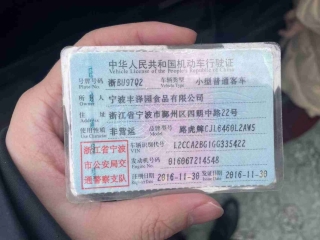 中华人民共和国机动车行驶证
Vehicle License of the People's Republic of China
号牌号码 浙BU97Q2 车辆类型 小型普通客车
所有人 宁波丰泽园食品有限公司
住址 浙江省宁波市鄞州区四明中路22号
使用性质 非营运 品牌型号 鹿虎牌CJL6460L2AWS
浙江省宁波市公安局交通警察支队
车辆识别代号 L2CCA2BG1GG335422
发动机号码 016067214548
注册日期 2016-11-30 发证日期 2016-11-30